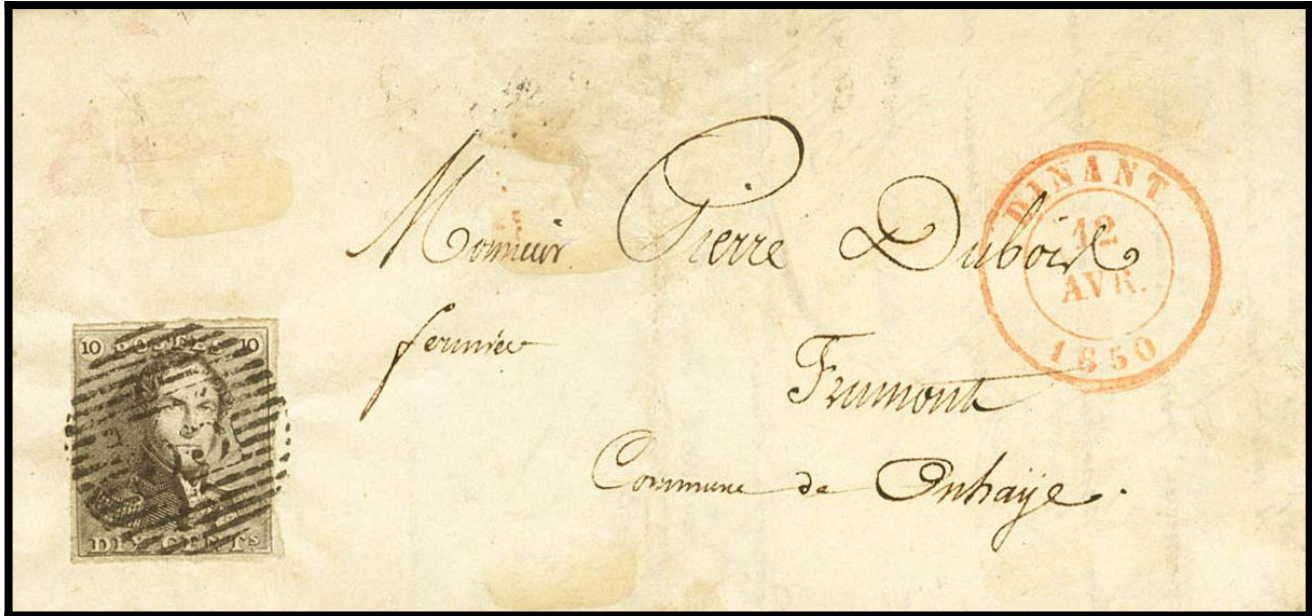 Monsieur Pierre Dubois
fermier
Frumont
Commune de Onhaije.
DINANT
12
AVR.
1850
10 POSTES 10
DIX CENTS